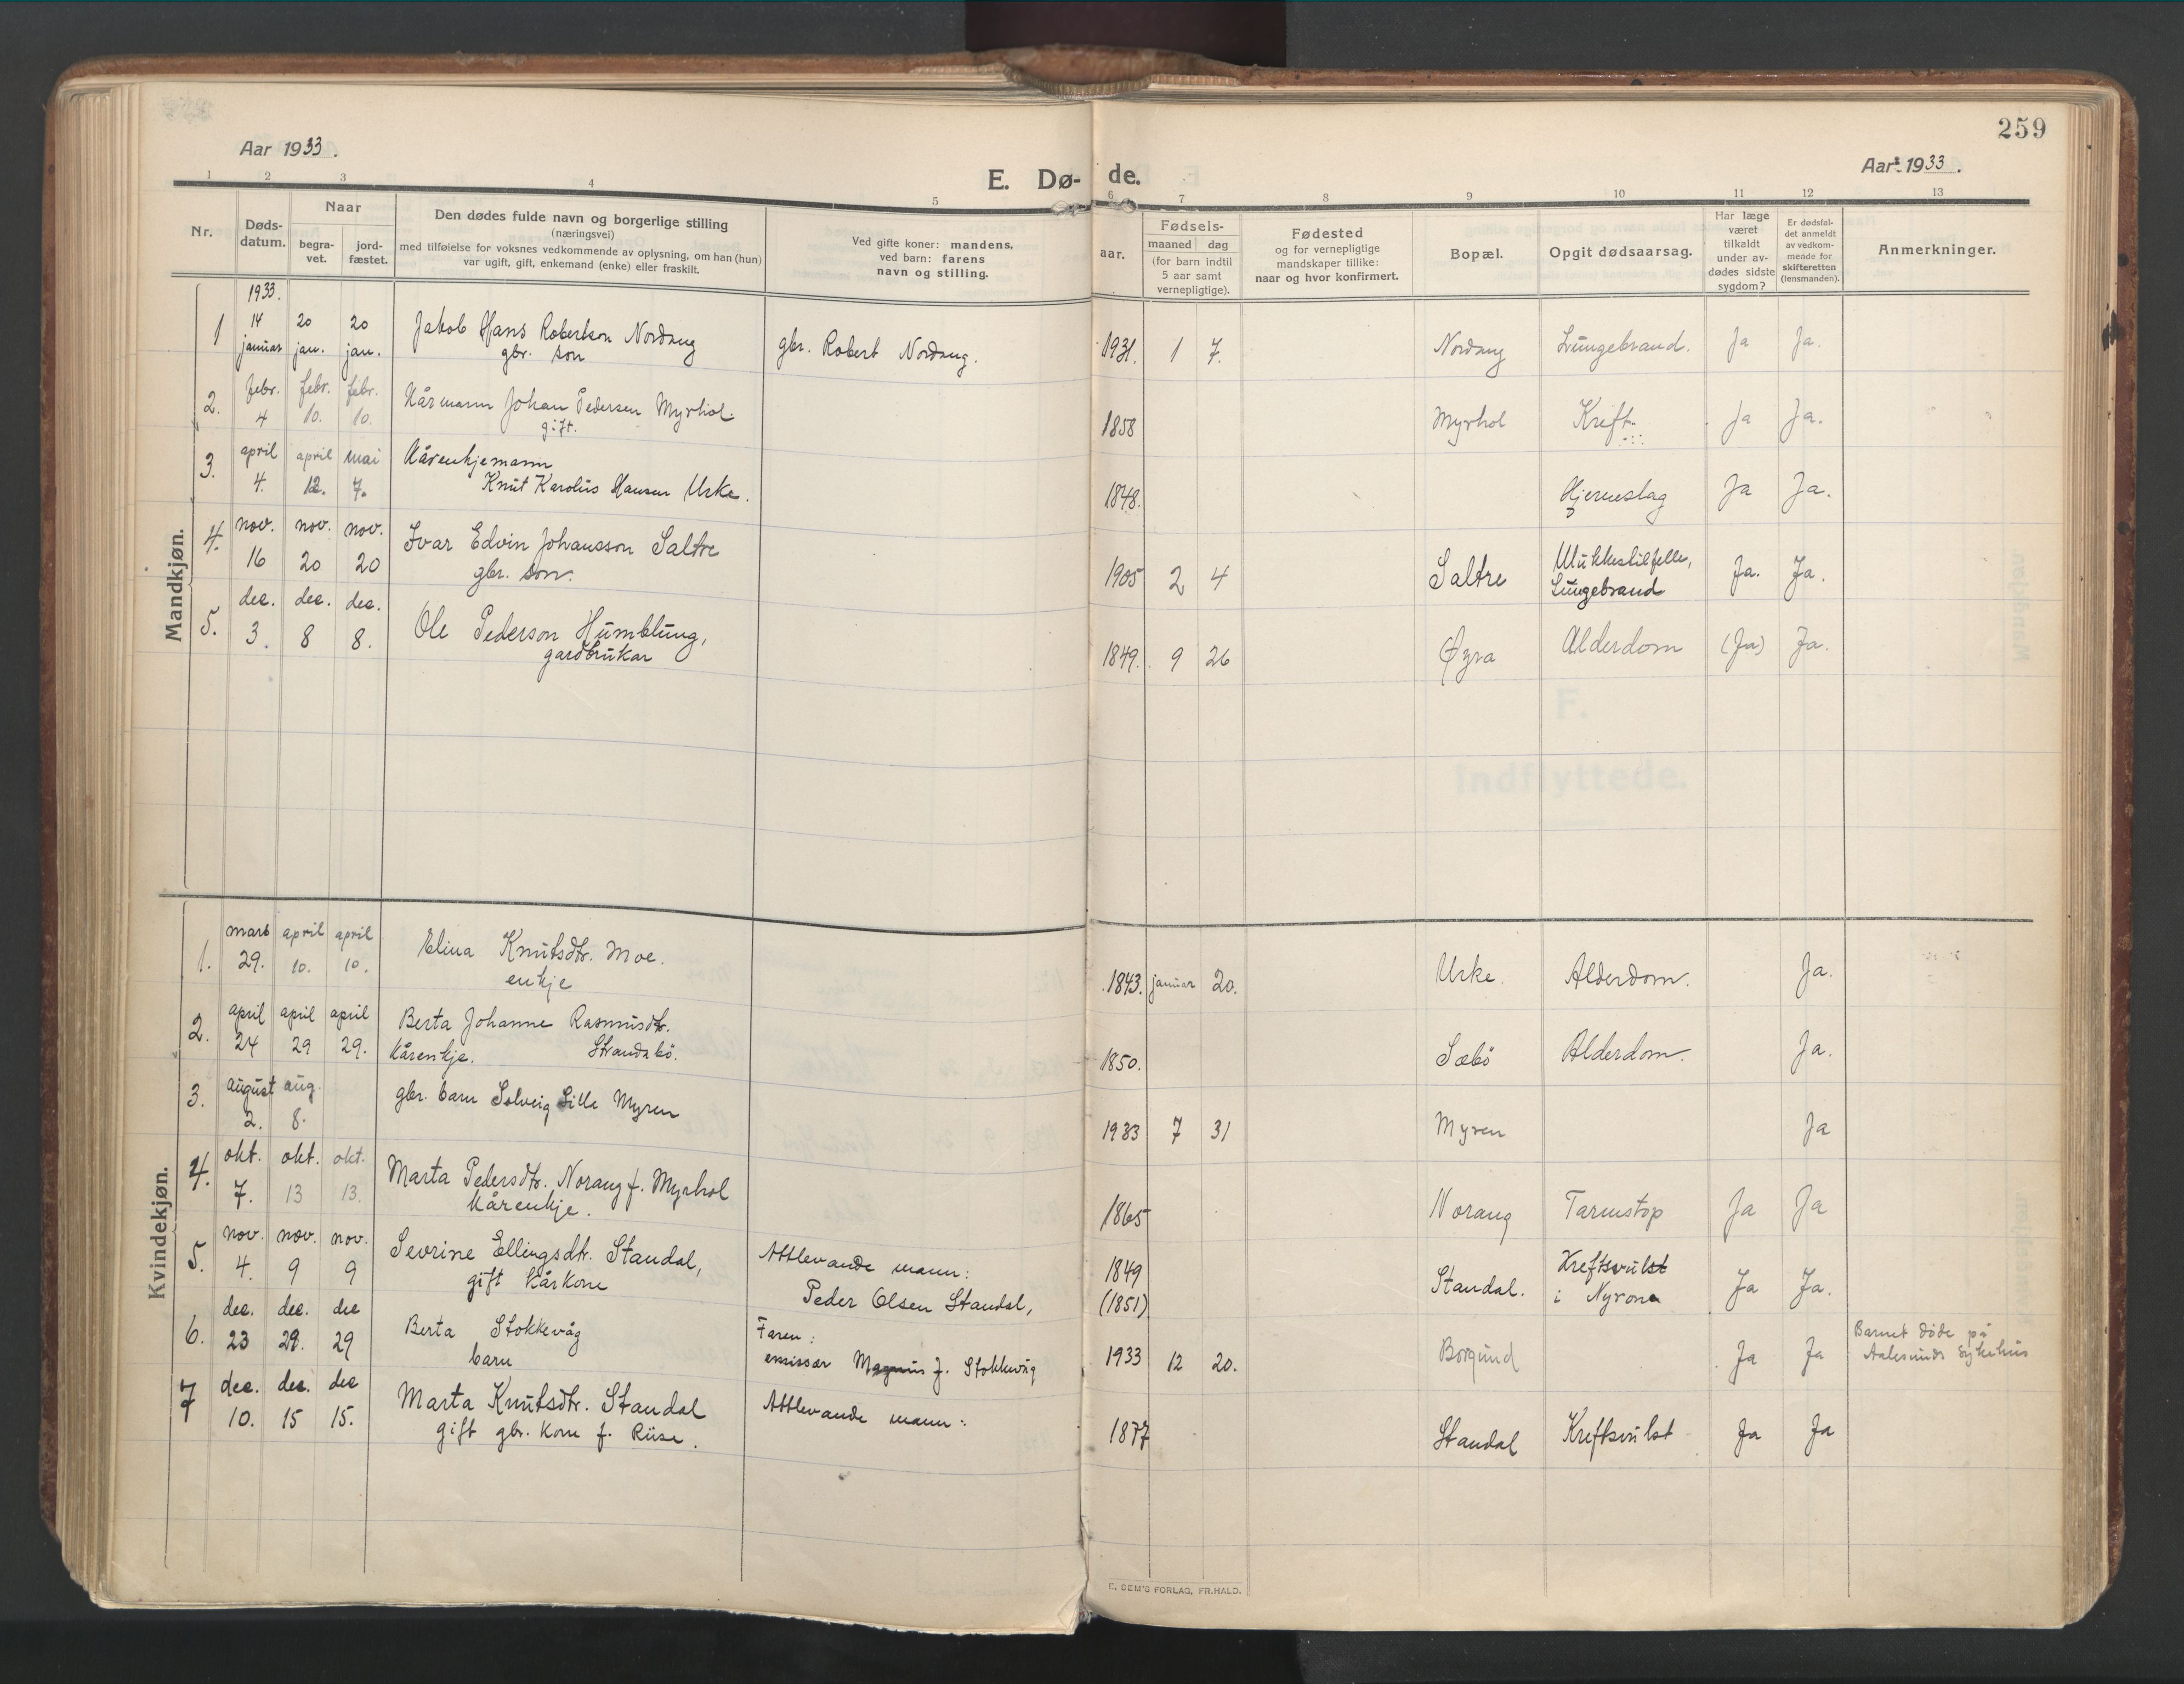 259
Aar 1933.
Aar 1933.
E. Dø- de.
1 2 3 4 5 6 7 8 9 10 11 12 13
Nr.
Døds-
datum.
Naar
begra-
vet.
jord-
fæstet.
Den dødes fulde navn og borgerlige stilling
(næringsvei)
med tilføielse for voksnes vedkommende av oplysning, om han (hun)
var ugift, gift, enkemand (enke) eller fraskilt.
Ved gifte koner: mandens,
ved barn: farens
navn og stilling.
aar.
Fødsels-
maaned dag
(for barn indtil
5 aar samt
vernepligtige).
Fødested
og for vernepligtige
mandskaper tillike:
naar og hvor konfirmert.
Bopæl.
Opgit dødsaarsag.
Har læge
været
tilkaldt
under av-
dødes sidste
sygdom?
Er dødsfal-
det anmeldt
av vedkom-
mende for
skifteretten
(lensmanden).
Anmerkninger.
Mandkjøn.
1933.
1 14 januar 20 jan. 20 jan. Jakob Hans Robertson Nordang gbr. Robert Nordang. 1931. 1 7. Nordang Lungebrand. Ja Ja.
gbr. son
2. febr. 4 febr. 10. febr. 10. Kårmann Johan Pedersen Myrhol. 1858 Myrhol Kreft Ja Ja.
gift.
3. april 4. april 12. mai 7. Kårenkjemann
Knut Karolus Hansen Urke. 1848. Hjerneslag Ja Ja.
4. nov. 16 nov. 20 nov. 20 Ivar Edvin Johansson Saltre 1905 2 4 Saltre Ulukkestilfelle, Ja. Ja.
gbr. son. Lungebrand
5. des. 3. des. 8 des. 8. Ole Pederson Humblung, 1849. 9 26 Øyra Alderdom (Ja) Ja.
gardbrukar
Kvindekjøn.
1. mars 29. april 10. april 10. Elina Knutsdtr. Moe. 1843. januar 20. Urke. Alderdom. Ja.
enkje
2. april 24 april 29 april 29. Berta Johanne Rasmusdtr. 1850. Sæbö Alderdom. Ja.
Kårenkje. Strandabö.
3. august 2. aug. 8. gbr. barn Solveig Lilla Myren 1933 7 31 Myren Ja
4. okt. 7. okt. 13 okt. 13. Marta Pedersdtr. Norang f. Myrhol 1865 Norang Tarmstop Ja Ja
Kårenkje.
5. nov. 4. nov. 9 nov. 9 Sevrine Ellingsdtr. Standal, Attlevande mann: 1849 Standal. Kreftsvulst Ja Ja.
gift Kårkone Peder Olsen Standal, (1851) i Nyrone
6. des. 23 des. 29. des 29 Berta Stokkevåg Faren: 1933 12 20. Borgund Ja Ja Barnet döde på
barn emissær Magnus J. Stokkevåg Aalesunds Sykehus
7 des. 10. des. 15 des 15. Marta Knutsdtr. Standal Attlevande mann: 1877 Standal Kreftsvulst Ja Ja
gift gbr. kone f. Riise.
E. SEM'S FORLAG, FR.HALD.
F.
Indflyttede.